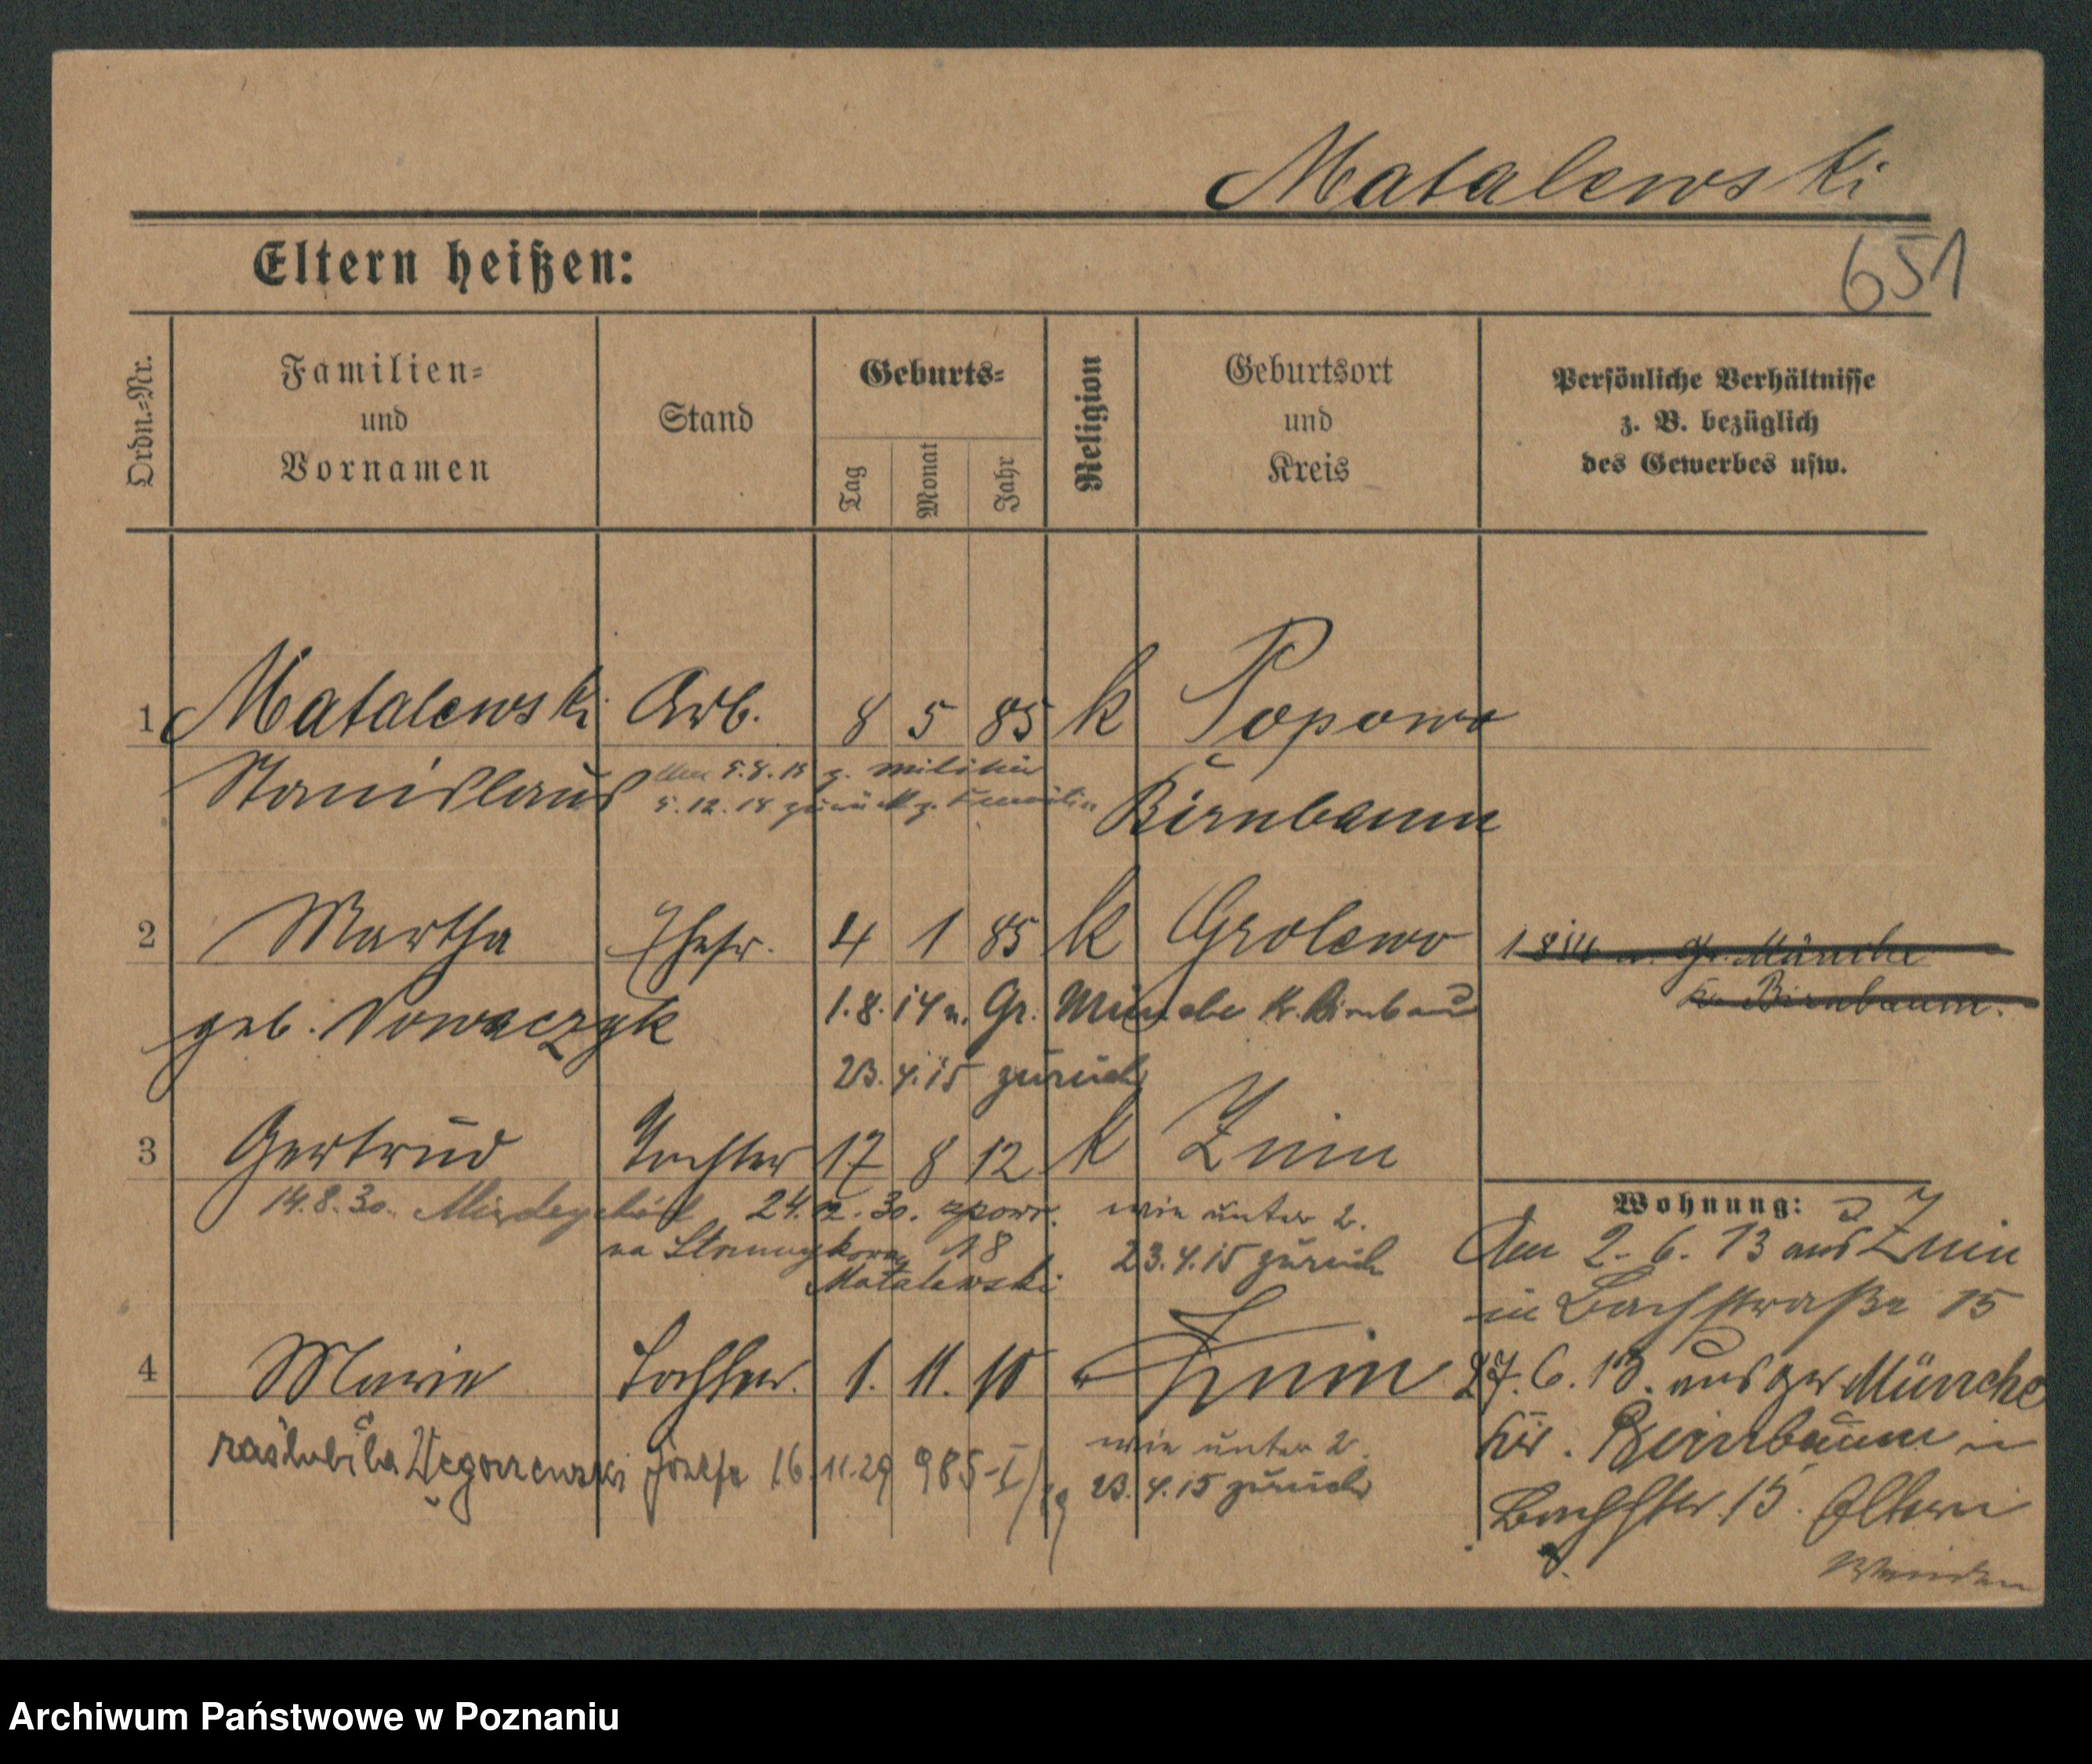 Matalewski
651
Eltern heißen:
Ordn.-Nr.
Familien-
und
Vornamen
Stand
Geburts-
Tag
Monat
Jahr
Religion
Geburtsort
und
Kreis
Persönliche Verhältnisse
z. B. bezüglich
des Gewerbes usw.
1 Matalewski Arb. 8 5 85 k Popowo
Stanislaus Birnbaum
z. Militär
zurück z. Familie
2 Martha Ehefr. 4 1 85 k Grolewo
geb. Nowaczyk
1.8.14 n. Gr. Münche Kr. Birnbaum
23.4.15 zurück
Gr. Münche
Kr. Birnbaum.
3 Gertrud Tochter 17 8 12 k Znin
14.8.30. Międzychód 24.12.30. zpowr. wie unter 2.
na 18 23.4.15 zurück
Matalewski
4 Marie Tochter. 1. 11. 10 " Znin
zaślubiła Węgorzewski Józefa 16.11.29 985-I/29
wie unter 2.
23.4.15 zurück
Wohnung:
Am 2.6.13 aus Znin
in Bachstraße 15
27.6.13. aus Gr Münche
Kr. Birnbaum in
Bachstr. 15. Eltern
Wenden
Archiwum Państwowe w Poznaniu